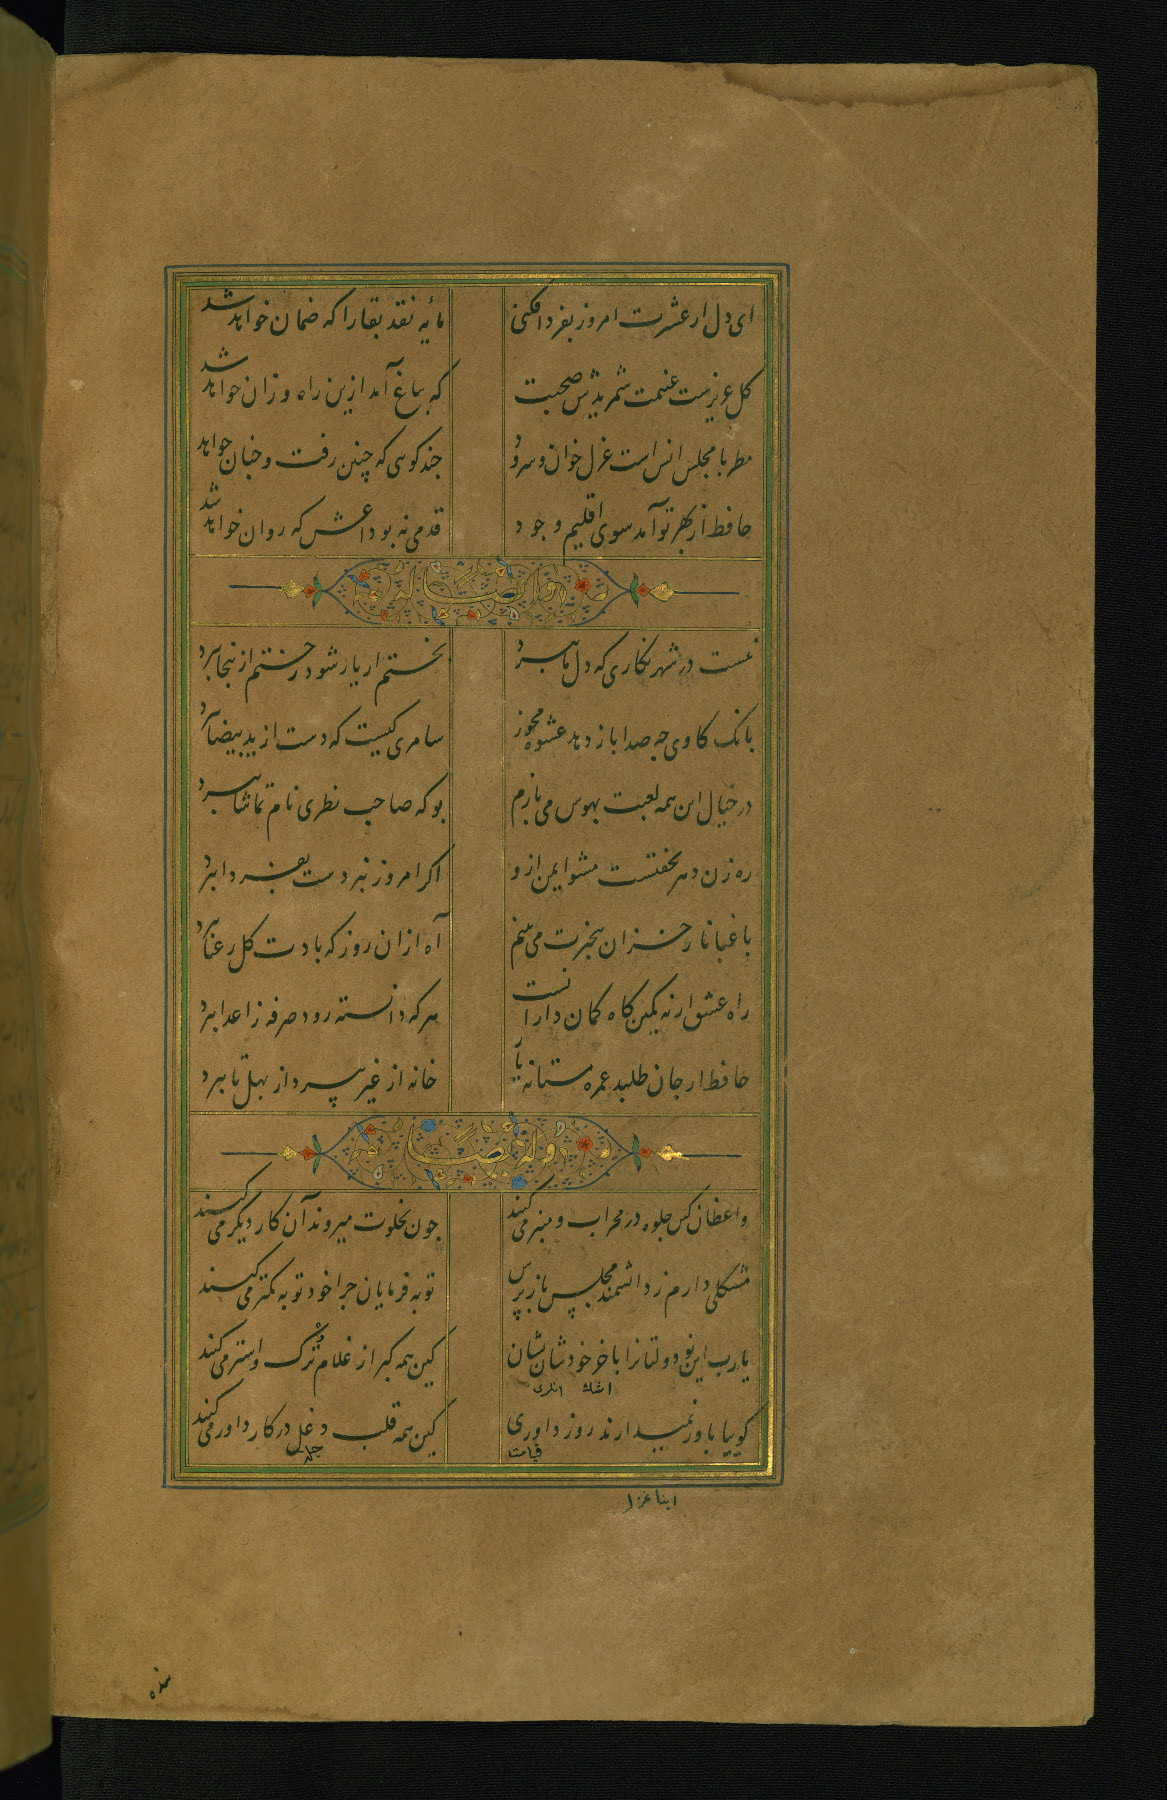 ای دل ار عشرت امروز بفردا فکنی
مایه نقد بقا را که ضمان خواهد شد
کل عزیزست غنیمت شمریدش صحبت
که بباغ آمد ازین راه و زان خواهد شد
مطربا مجلس انس است غزل خوان و سرود
جند کوی که چنین رفت و جنان خواهد شد
حافظ از بهر تو آمد سوی اقلیم وجود
قدمی نه بوداعش که روان خواهد شد
وله ایضا
نیست در شهر نکاری که دل ما ببرد
بختم ار یار شود رختم از ینجا ببرد
بانک کاوی چه صدا باز دهد عشوه مخر
سامری کیست که دست از ید بیضا ببرد
در خیال این همه لعبت بهوس می بازم
بو که صاحب نظری نام تماشا ببرد
ره زن دهر نخفتست مشو ایمن ازو
اکر امروز نبردست بفردا ببرد
باغبانا ز خزان بیخبرت می بینم
آه ازان روز که بادت کل رعنا ببرد
راه عشق ار نه کمین کاه کمان دارانست
هر که دانسته رود صرفه ز اعدا ببرد
حافظ ار جان طلبد غمزه مستانه یار
خانه از غیر بپرداز بهل تا ببرد
وله ایضا
واعظان کین جلوه در محراب و منبر می کنند
جون بخلوت میروند آن کار دیکر می کنند
مشکلی دارم ز دانشمند مجلس باز پرس
توبه فرمایان جرا خود توبه کمتر می کنند
یا رب این نو دولتانرا با خر خودشان نشان
کین همه کبر از غلام ترک و استر می کنند
کوییا باور نمیدارند روز داوری
کین همه قلب و دغل در کار داور می کنند
قیامت
بنده